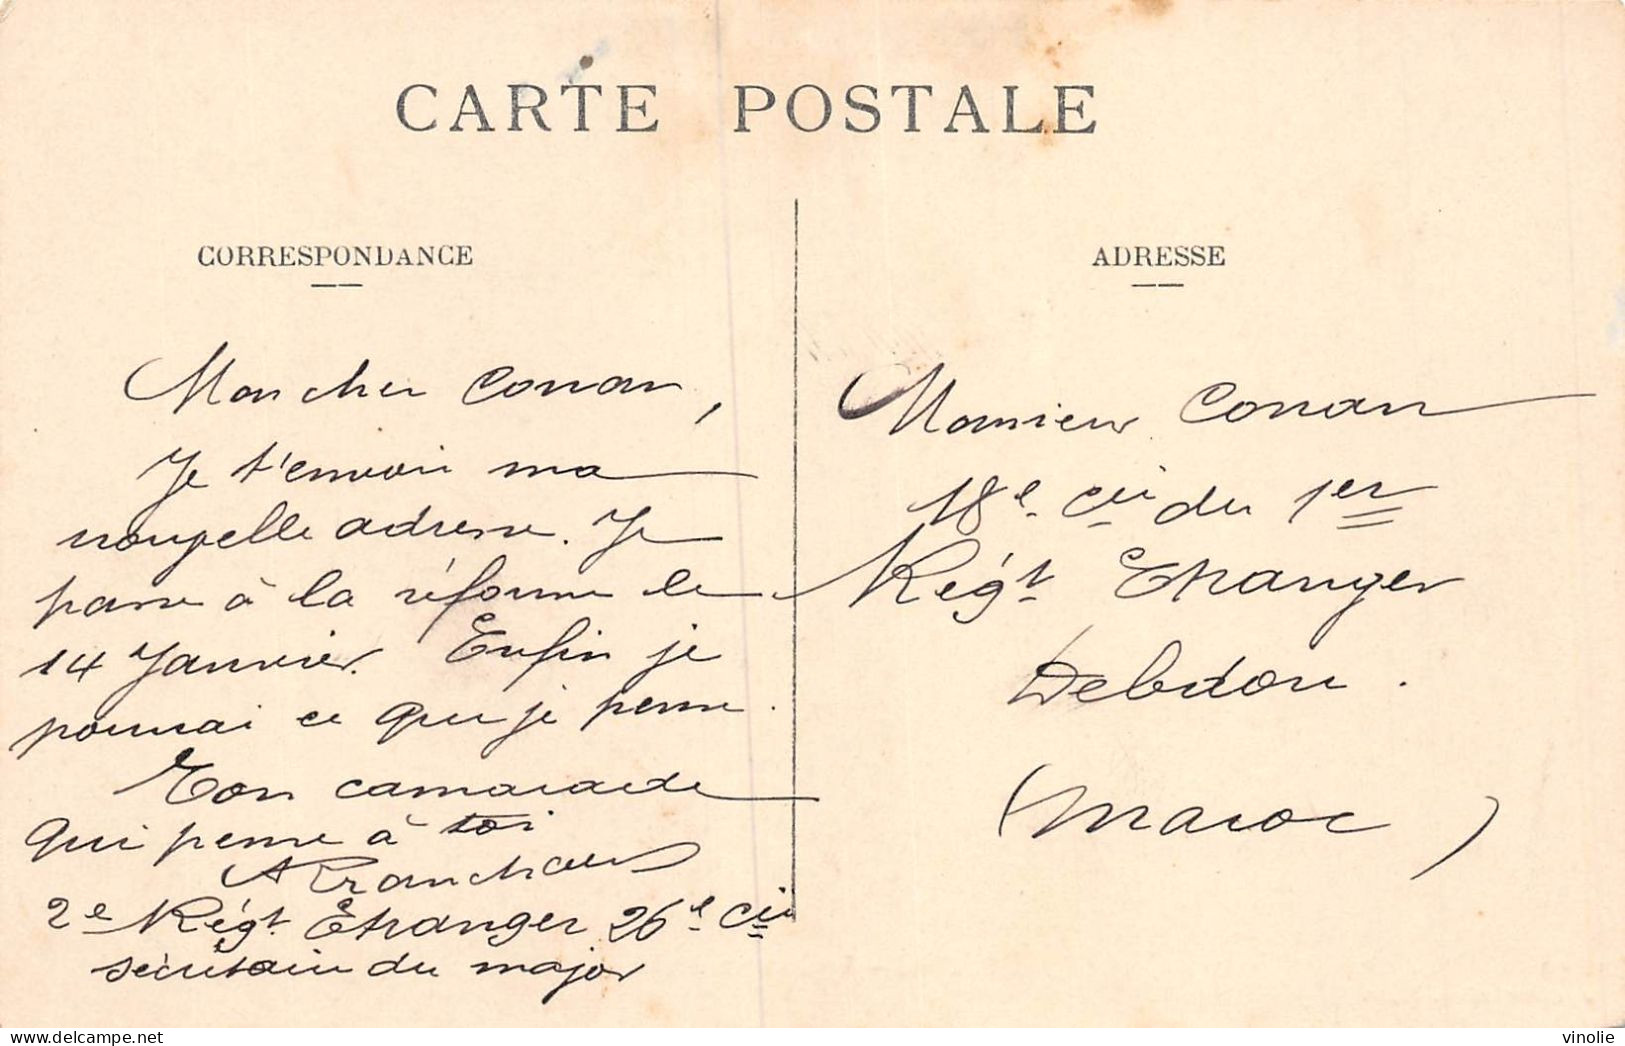 CARTE POSTALE
CORRESPONDANCE
Mon cher Conan,
Je t'envoie ma
nouvelle adresse. Je
passe à la réforme le
14 Janvier. Enfin je
pourrai ce que je pense.
Ton camarade
qui pense à toi
2e Régt Etranger 26e Cie
secrétaire du major
ADRESSE
Monsieur Conan
18e Cie du 1er
Régt Etranger
Debdou.
(Maroc)
vinolie